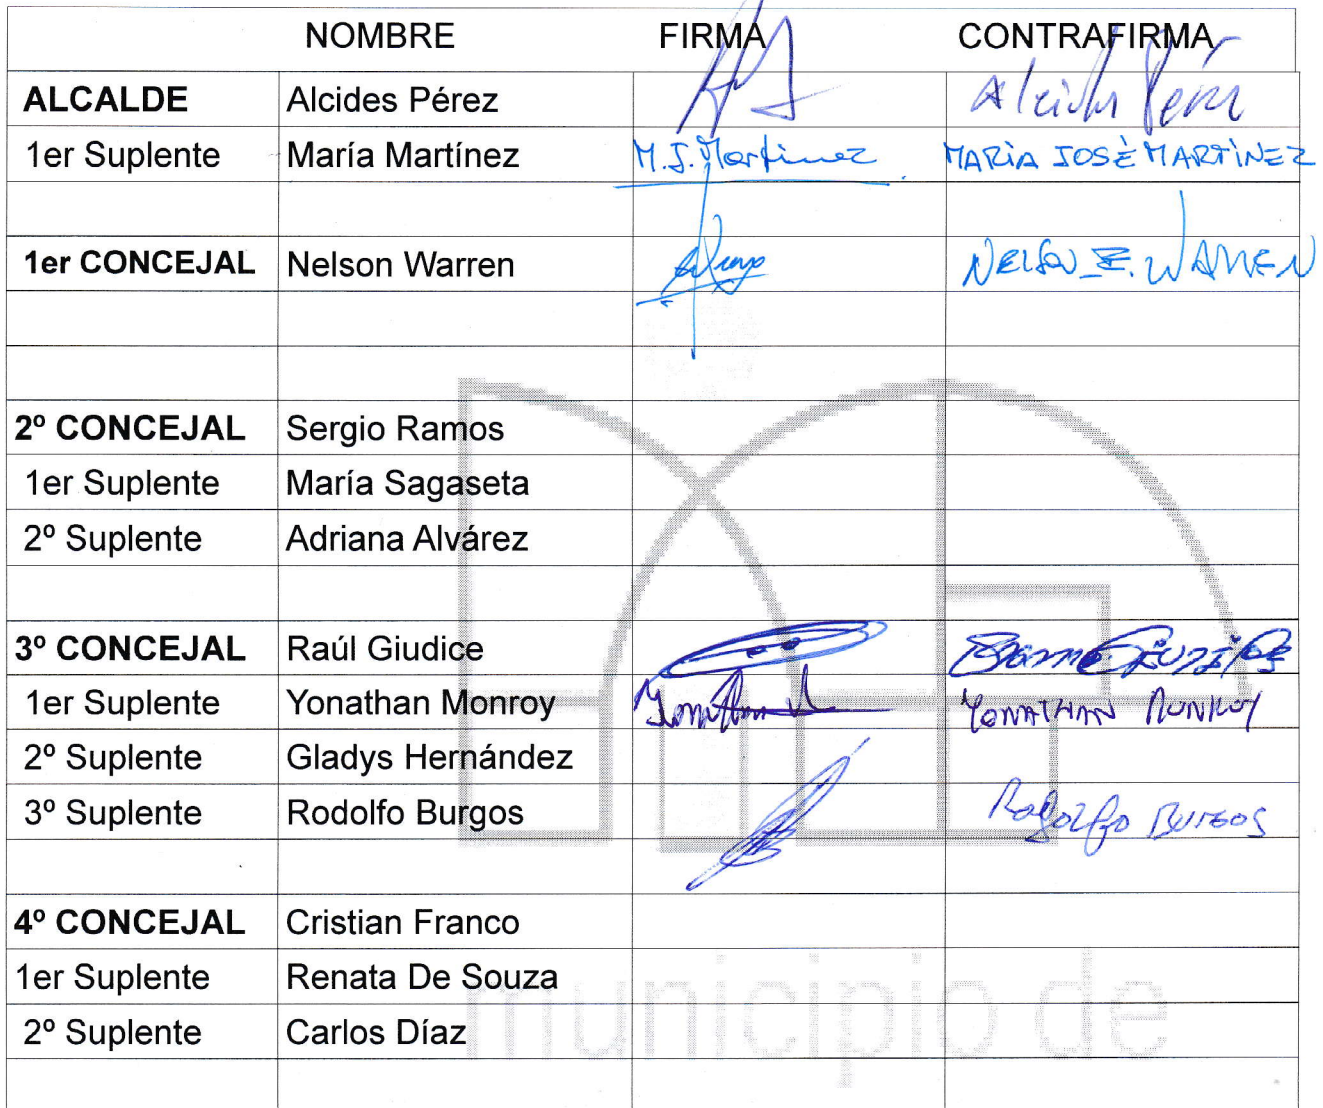 NOMBRE FIRMA CONTRAFIRMA
ALCALDE Alcides Pérez Alcides Pérez
1er Suplente María Martínez M.J. Martinez MARÍA JOSÈ MARTÌNEZ
1er CONCEJAL Nelson Warren NELSON E. WARREN
2º CONCEJAL Sergio Ramos
1er Suplente María Sagaseta
2º Suplente Adriana Alvárez
3º CONCEJAL Raúl Giudice
1er Suplente Yonathan Monroy Yonathan M YONATHAN MONROY
2º Suplente Gladys Hernández
3º Suplente Rodolfo Burgos Rodolfo BURGOS
4º CONCEJAL Cristian Franco
1er Suplente Renata De Souza
2º Suplente Carlos Díaz
municipio de